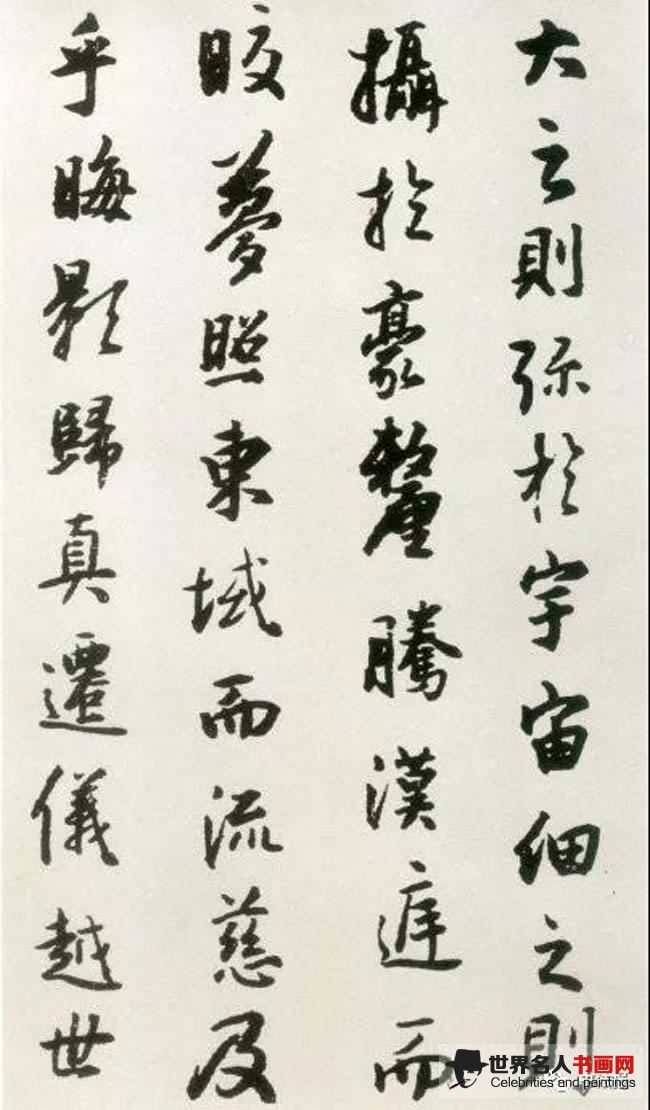 大之則弥於宇宙細之則
攝於豪釐騰漢庭而
晈夢照東域而流慈及
乎晦影歸真遷儀越世
世界名人书画网
Celebrities and paintings